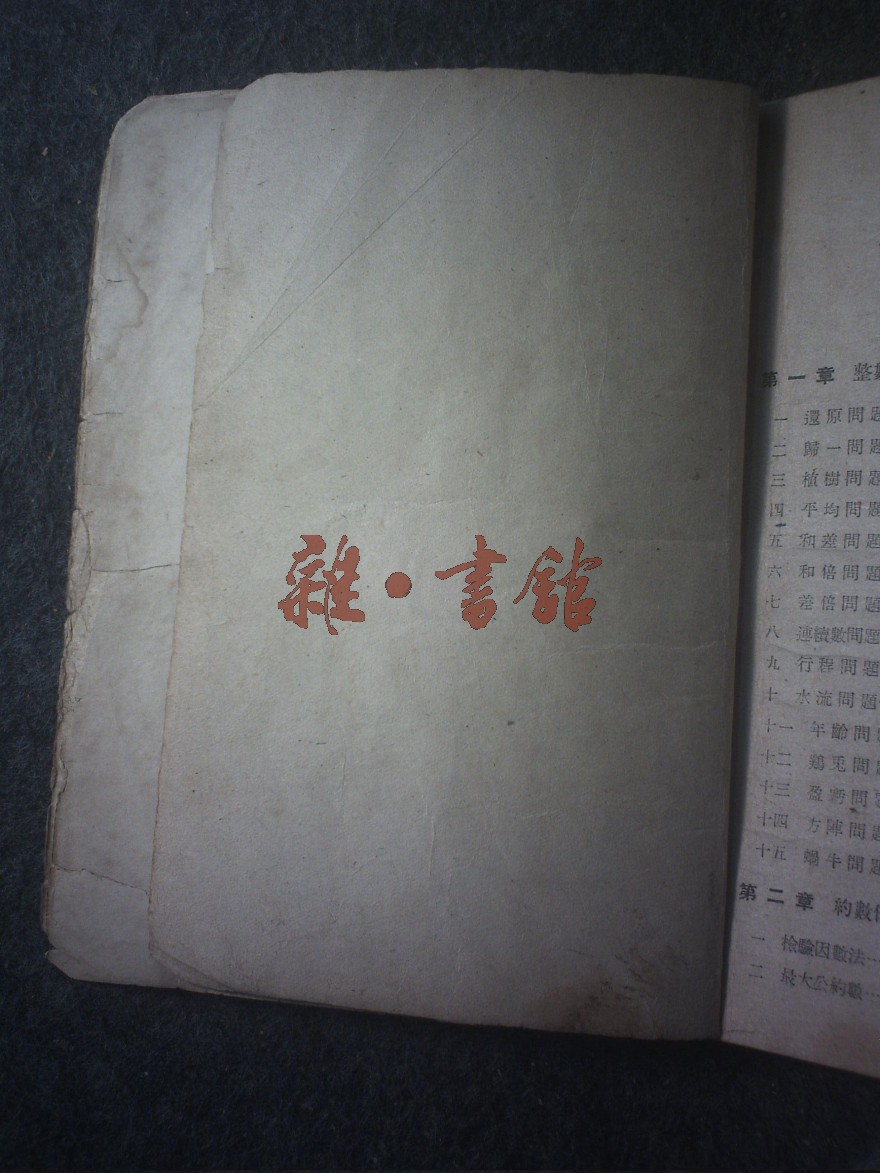 雜·書館
第一章 整數
一 還原問題
二 歸一問題
三 植樹問題
四 平均問題
五 和差問題
六 和倍問題
七 差倍問題
八 連續數問題
九 行程問題
十 水流問題
十一 年齡問
十二 鷄兎問
十三 盈虧問
十四 方陣問
十五 蝸牛問
第二章 約數
一 檢驗因數法…
二 最大公約數…